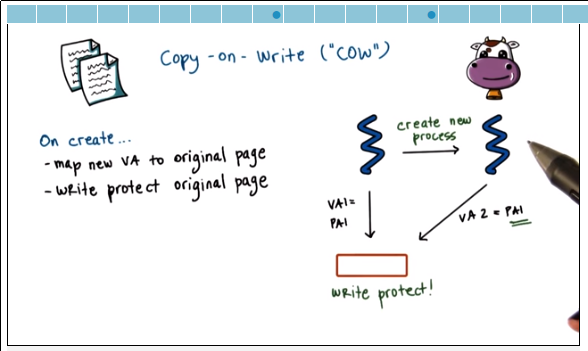 Copy-on-Write ("COW")
On create...
-map new VA to original page
-write protect original page
create new
process
VA1=
PA1
VA2 = PA1
write protect!